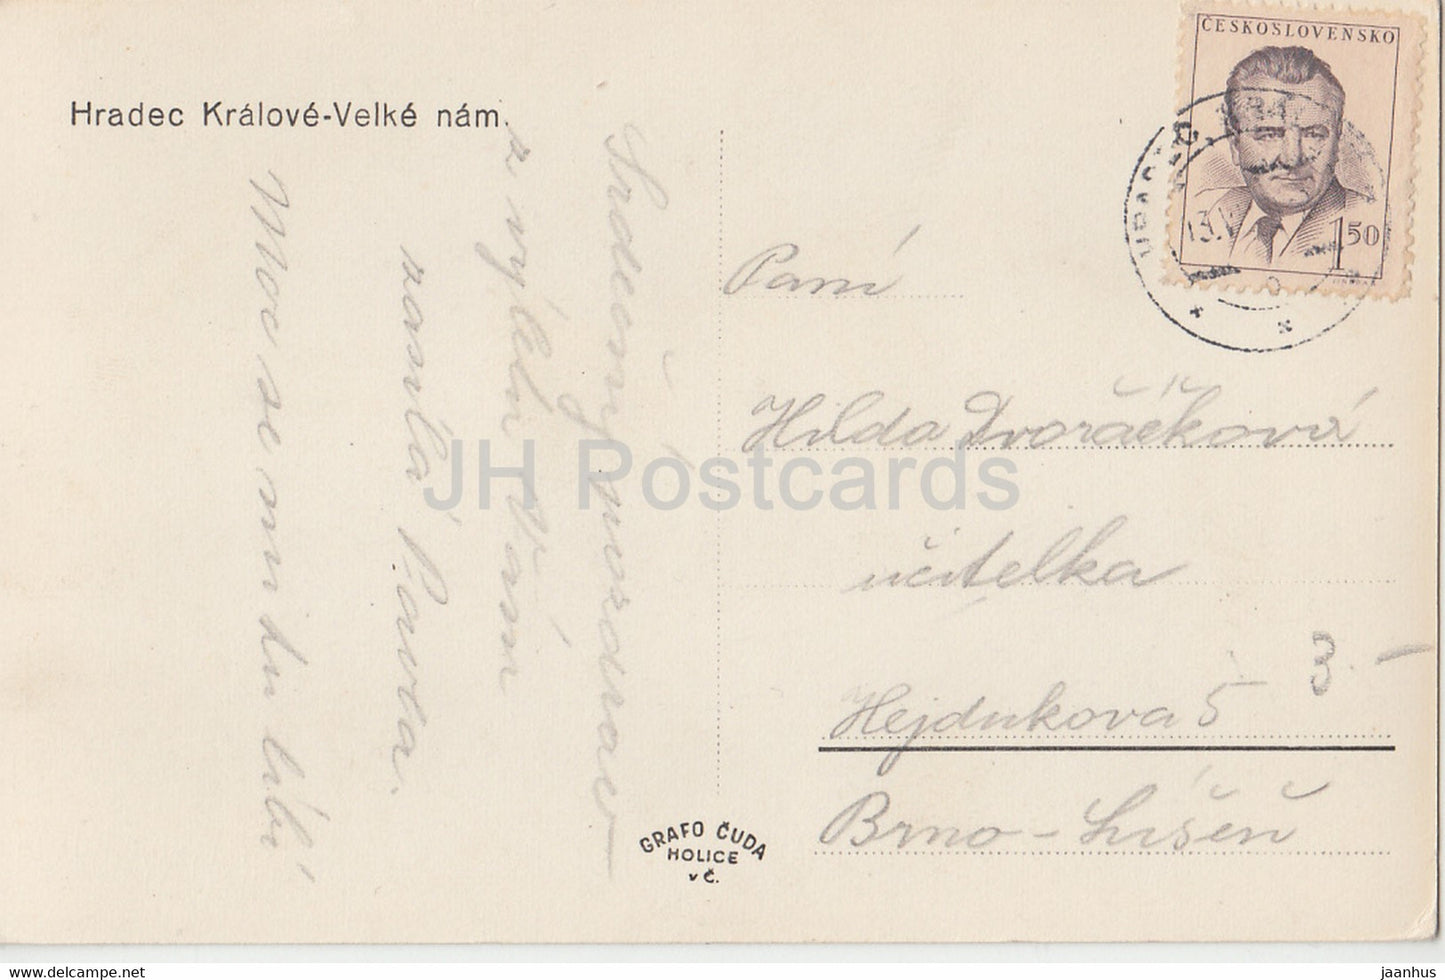 Hradec Králové-Velké nám.
Srdečný pozdrav
z výletu Vám
zasílá Pavla.
Moc se mi tu líbí
ČESKOSLOVENSKO
1 50
HRADEC KRÁL
13.V
Paní
Hilda Dvořáčková
učitelka
Hejdukova 5
3.-
Brno-Líšeň
GRAFO ČUDA
HOLICE
v Č.
JH Postcards
hipstamp.com
jaanhus